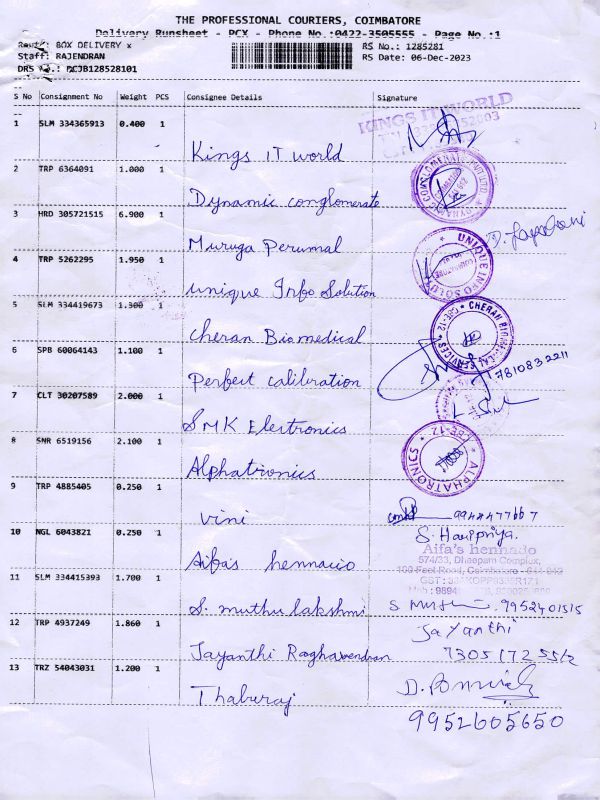 THE PROFESSIONAL COURIERS, COIMBATORE
Delivery Runsheet - PCX - Phone No.:0422-3505555 - Page No.:1
BOX DELIVERY x
RS No.: 1285281
Staff: RAJENDRAN
RS Date: 06-Dec-2023
DRS No.: PCJB128528101
S No Consignment No Weight PCS Consignee Details Signature
1 SLM 334365913 0.400 1 Kings IT world
KINGS IT WORLD
2 TRP 6364091 1.000 1 Dynamic conglomerate
3 HRD 305721515 6.900 1 Muruga Perumal
4 TRP 5262295 1.950 1 unique Info Solution
UNIQUE INFO
5 SLM 334419673 1.300 1 Cheran Biomedical
CHERAN
6 SPB 60064143 1.100 1 Perfect calibration
7810832211
7 CLT 30207589 2.000 1 SMK Electronics
8 SNR 6519156 2.100 1 Alphatronics
ALPHATRONICS * CBE-12 *
9 TRP 4885405 0.250 1 vini
10 NGL 6043821 0.250 1 Aifas hennaio
S. Harippriya.
Aifa's hennado
574/33, Dheepam Complex,
100 Feet Road, Coimbatore - 641 012
11 SLM 334415393 1.700 1 S. muthu lakshmi
9952401515
12 TRP 4937249 1.860 1 Jayanthi Raghavendran
Jayanthi
7305172552
13 TRZ 54043031 1.200 1 Thaburaj
9952605650